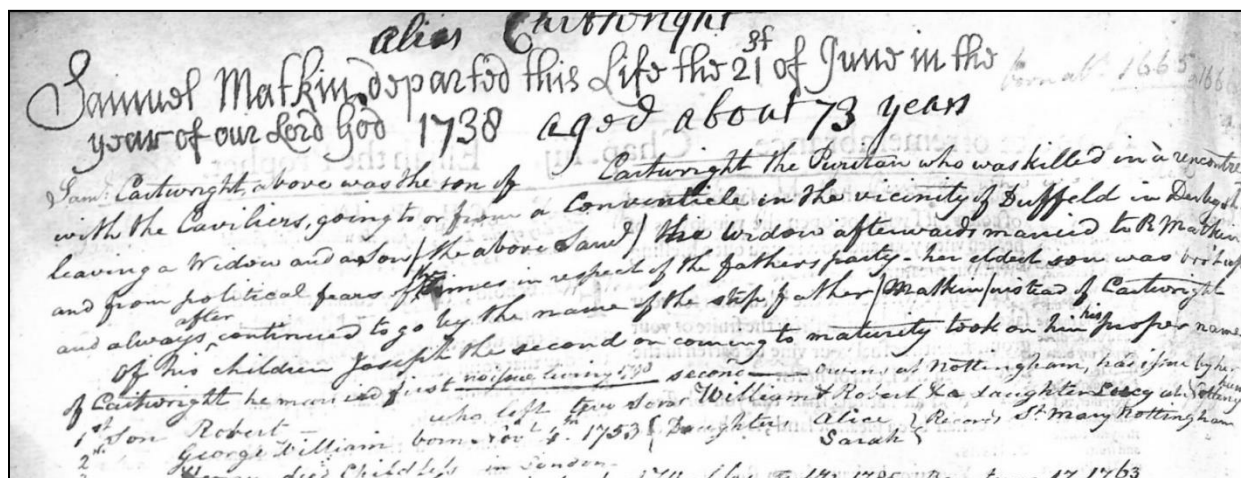 alias Cartwright
Samuel Matkin departed this Life the 21st of June in the
born abt. 1665
year of our Lord God 1738 aged about 73 years
Saml. Cartwright, above was the son of Cartwright the Puritan who was killed in a rencontre
with the Caviliers, going to or from a Conventicle in the vicinity of Duffeld in
leaving a Widow and a son / the above Saml / the widow afterwards married to R Matkin
and from political fears of the times in respect of the fathers party - her eldest son was
and always after continued to go by the name of the step father / Matkin / instead of Cartwright
of his children Joseph the second on coming to maturity took on him his proper name
of Cartwright he married first no issue living second Owens at Nottingham, had issue by her
1st Son Robert - who left two Sons William & Robert & a daughter
2d George William born Novr 1753 Daughter Sarah St. Mary Nottingham
died Childless in London
17 1763